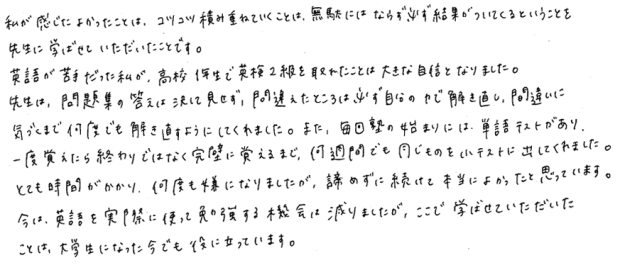 私が感じたよかったことは、コツコツ積み重ねていくことは、無駄にはならず必ず結果がついてくるということを
先生に学ばせていただいたことです。
英語が苦手だった私が、高校1年生で英検2級を取れたことは大きな自信となりました。
先生は、問題集の答えは決して見せず、間違えたところは必ず自分の力で解き直し、間違いに
気づくまで何度でも解き直すようにしてくれました。また、毎回塾の始まりには単語テストがあり、
一度覚えたら終わりではなく完璧に覚えるまで、何週間でも同じものを小テストに出してくれました。
とても時間がかかり、何度も嫌になりましたが、諦めずに続けて本当によかったと思っています。
今は、英語を実際に使って勉強する機会は減りましたが、ここで学ばせていただいた
ことは、大学生になった今でも役に立っています。